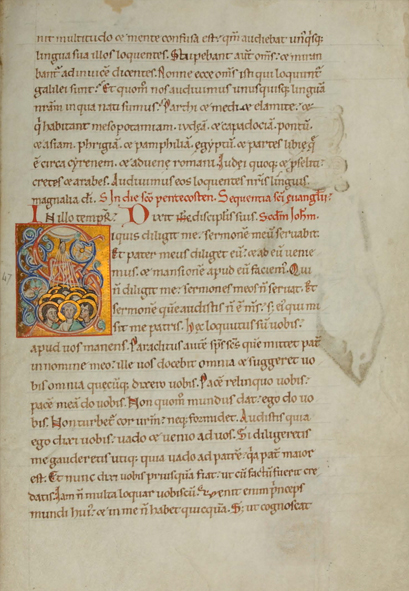 nit multitudo & mente confusa est: qm̄ audiebat unꝰqisq;
lingua sua illos loquentes. Stupebant aut̄ om̄s: & miran
bant̄ ad inuicē dicentes. Nonne ecce om̄s isti qui loquunt̄
galilei sunt? Et quom̄ nos audiuimus unusquisque linguā
nr̄am in qua nati sumus? Parthi & medi & elamitę: &
q̇ habitant mesopotamiam. iudeā. & capadociā. pontū.
& asiam. phrigiā. & pamphiliā. egyptū. & partes libię q̄
ē circa cyrenem. & aduenę romani. Iudei quoq; & pseliti.
cretes & arabes. Audiuimus eos loquentes nr̄is linguis
magnalia di. In die sc̄o pentecosten. Sequentia sc̄i euanglii.
In illo tempr̄. Dixit ihc̄ discipl'is suis. Scdm̄ Ioh̄m.
iquis diligit me: sermonē meū seruabit.
Et pater meus diliget eū: & ad eū uenie
mus. & mansionē apud eū faciem̄. Qui
n̄ diligit me: sermones meos n̄ seruat. Et
sermonē quē audistis n̄ ē m̄s. s; eꝰ qui mi
sit me patris. Hęc loquutus sū uobis.
apud uos manens. Paraclitus aut̄ sp̄s sc̄s quē mittet pat̄
in nomine meo: ille uos docebit omnia & suggeret uo
bis omnia quęcūq; dixero uobis. Pacē relinquo uobis:
pacē meā do uobis. Non quom̄ mundus dat: ego do uo
bis. Non turbet̄ cor ur̄m: neq; formidet. Audistis quia
ego dixi uobis. uado & uenio ad uos. Si diligeretis
me gauderetis utiq; quia uado ad patrē: q̇a pat̄ maior
est. Et nunc dixi uobis priusquā fiat: ut cū factū fuerit cre
datis. Iam n̄ multa loquar uobiscū. Venit enim pinceps
mundi huiꝰ. & in me n̄ habet quicquā. S; ut cognoscat
47